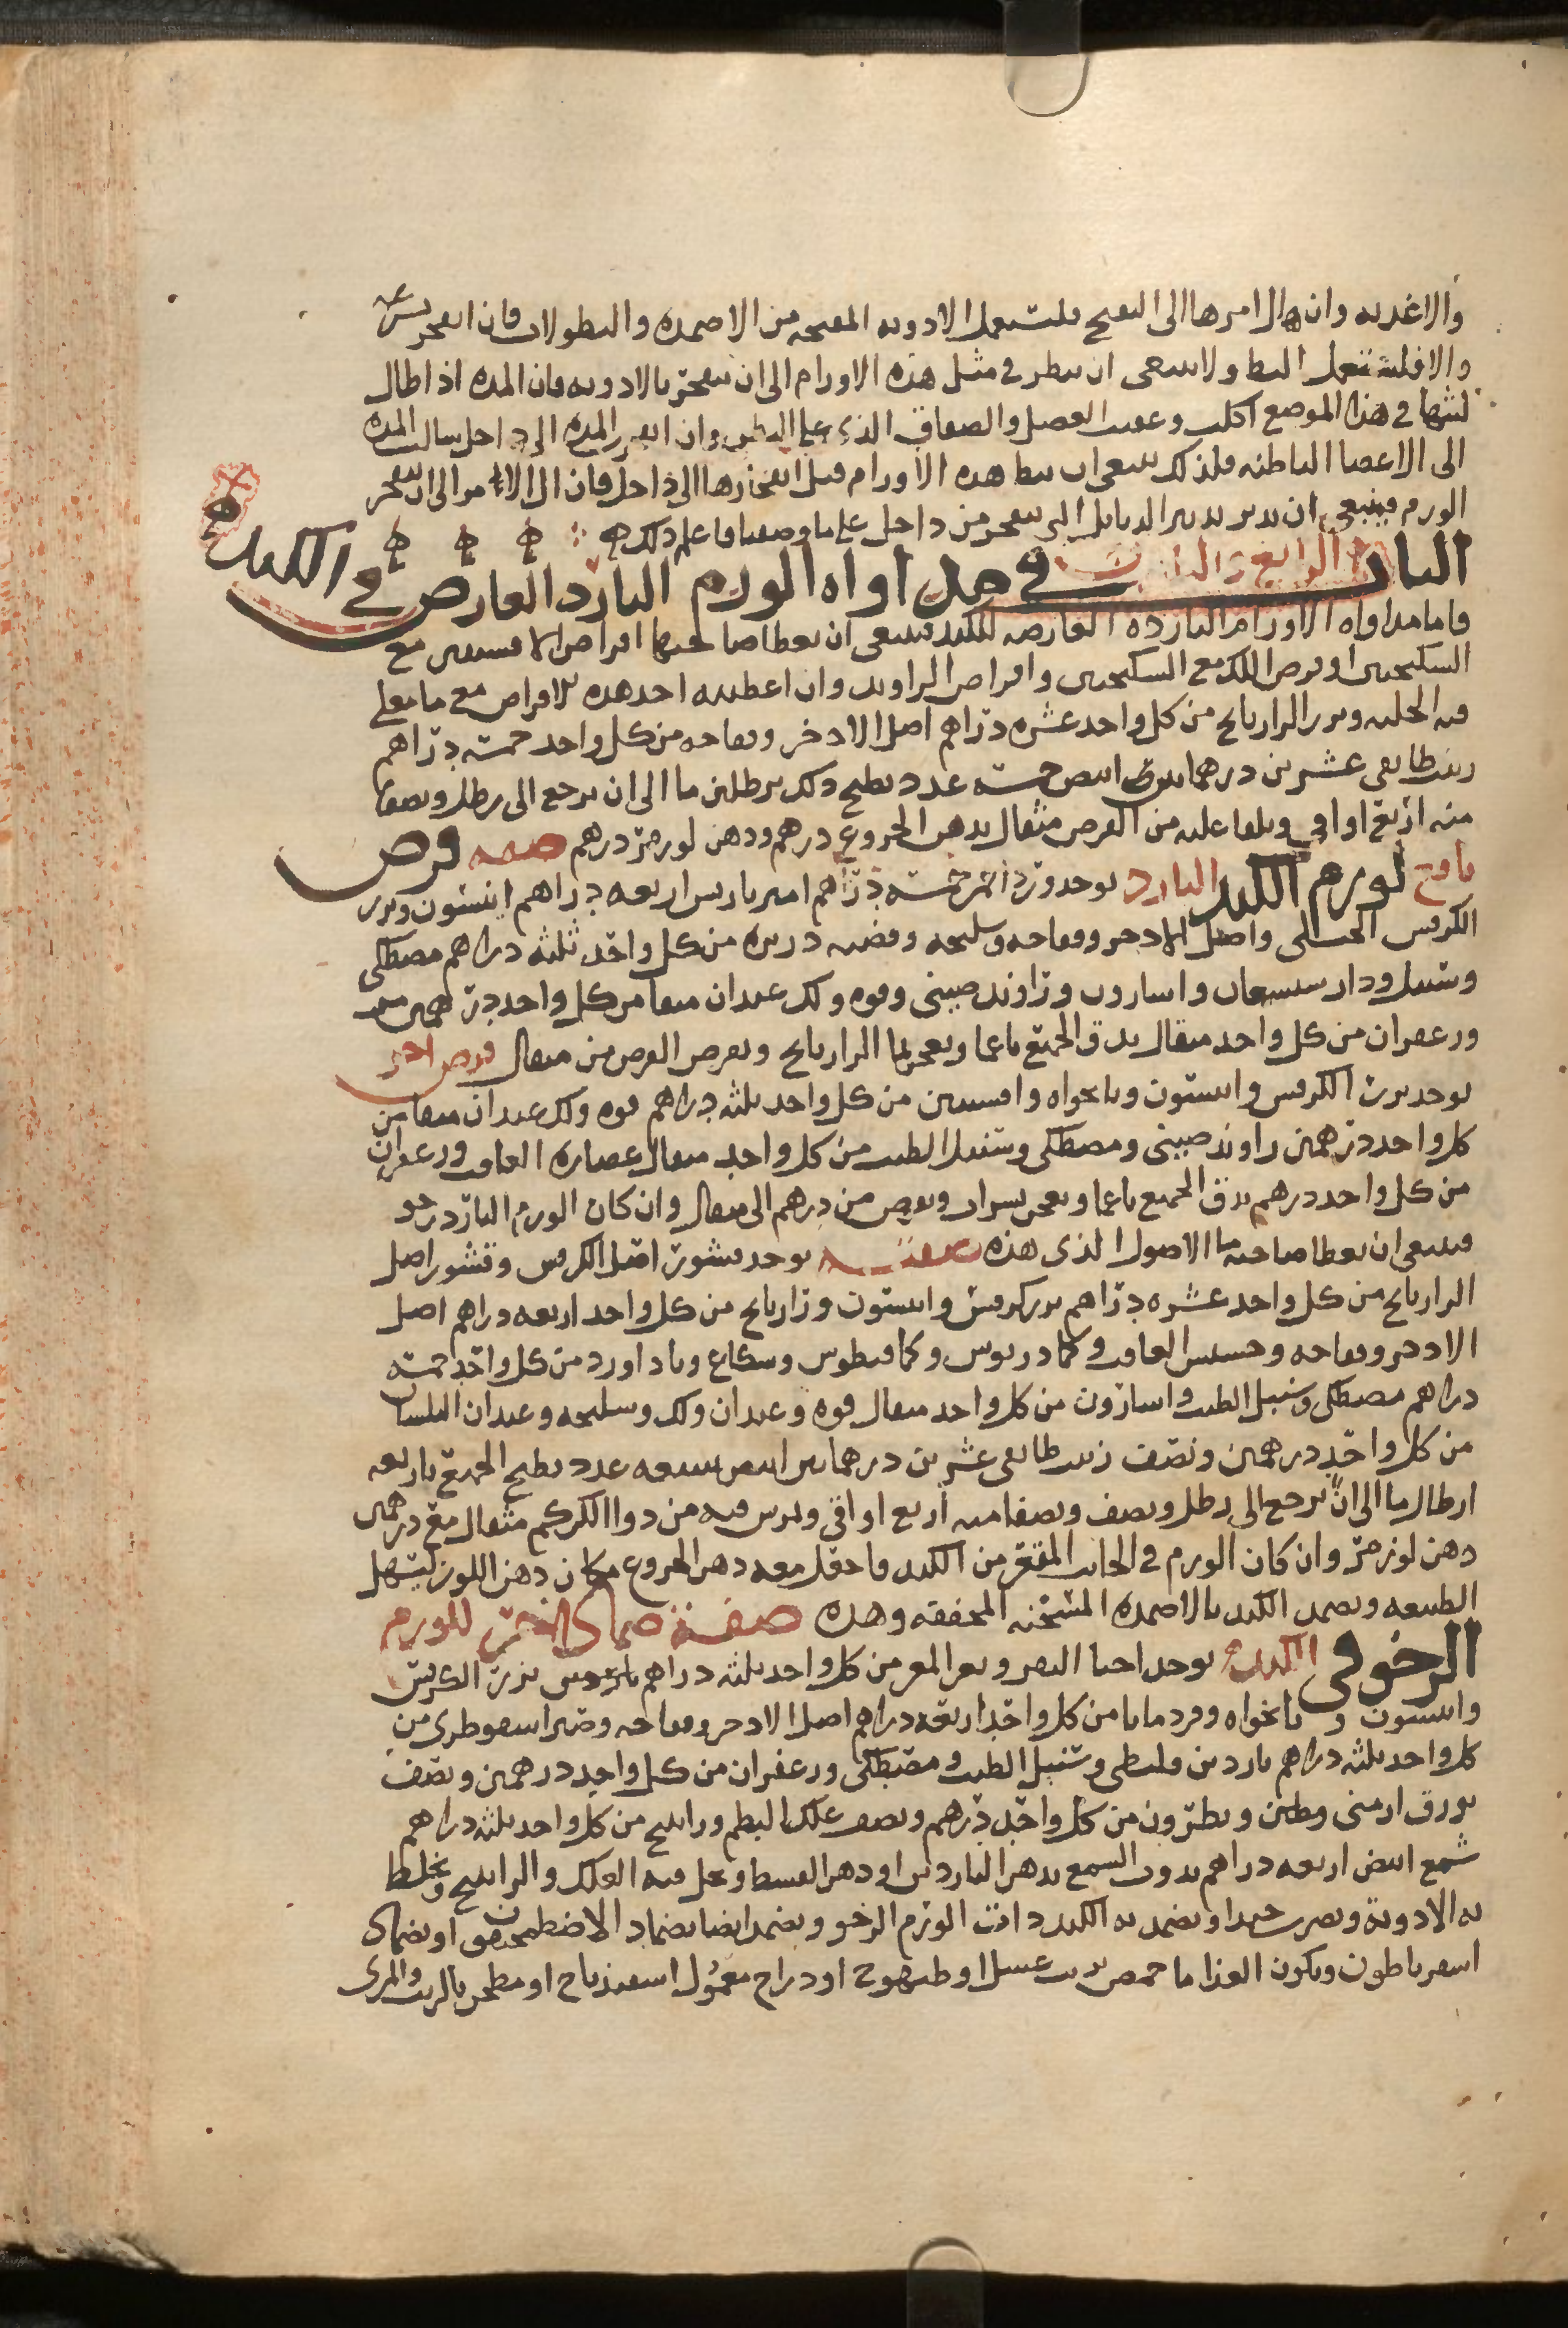 والاغديه وان ال امرها الى النضج فليستعمل الادويه المنضجه من الاضمده والنطولات فان انفجر بسرعه
والا فليستعمل البط ولا ينبغى ان ينطر فى مثل هذه الاورام الى ان تنفجر بالادويه فان المده اذا طال
لبثها فى هذا الموضع اكلت وعفنت العضل والصفاق الذى على البطن وان انفجر المده الى داخل سالت المده
الى الاعضا الباطنه فلذلك ينبغى ان يبط هذه الاورام قبل انفجارها الى داخل فان ال الامر الى ان ينفجر
الورم فينبغى ان تدبر تدبير الدبابل التى تنفجر من داخل على ما وصفنا فاعلم ذلك
الباب الرابع والثلاثون فى مداواه الورم البارد العارض فى الكبد
فاما مداواه الاورام البارده العارضه للكبد فينبغى ان يعطا صاحبها اقراص الافسنتين مع
السكنجبين او قرص اللك مع السكنجبين واقراص الراوند وان اعطيته احد هذه الاقراص مع ما مغلى
فيه الحلبه وبزر الرازيانج من كل واحد عشره دراهم اصل الادخر وفقاحه من كل واحد خمسه دراهم
زبيب طايفى عشرين درهما تين ابيض خمسه عدد يطبخ ذلك برطلين ما الى ان يرجع الى رطل ويصفا
منه اربع اواقى ويلقا عليه من القرص مثقال بدهن الخروع درهم ودهن لوز مر درهم صفه قرص
نافع لورم الكبد البارد يوخد ورد احمر خمسه دراهم امير باريس اربعه دراهم انيسون وبزر
الكرفس الجبلى واصل الادخر وفقاحه وسليخه وقصب دريره من كل واحد ثلثه دراهم مصطكى
وسنبل ودار شيشعان واسارون وراوند صينى وفوه ولك عيدان منقا من كل واحد درهمين مر
وزعفران من كل واحد مثقال يدق الجميع ناعما ويعجن بما الرازيانج ويقرص القرص من مثقال قرص اخر
يوخد بزر الكرفس وانيسون ونانخواه وافسنتين من كل واحد ثلثه دراهم فوه ولك عيدان منقا من
كل واحد درهمين راوند صينى ومصطكى وسنبل الطيب من كل واحد مثقال عصاره الغافت وزعفران
من كل واحد درهم يدق الجميع ناعما ويعجن بشراب ويقرص من درهم الى مثقال وان كان الورم البارد رخو
فينبغى ان يعطا صاحبه ما الاصول الذى هذه صفته يوخد قشور اصل الكرفس وقشور اصل
الرازيانج من كل واحد عشره دراهم بزر كرفس وانيسون ورازيانج من كل واحد اربعه دراهم اصل
الادخر وفقاحه وحشيش الغافت وكمادريوس وكمافيطوس وشكاع وباداورد من كل واحد خمسه
دراهم مصطكى وسنبل الطيب واسارون من كل واحد مثقال فوه وعيدان ولك وسليخه وعيدان البلسان
من كل واحد درهمين ونصف زبيب طايفى عشرين درهما تين ابيض سبعه عدد يطبخ الجميع باربعه
ارطال ما الى ان يرجع الى رطل ونصف ويصفا منه اربع اواقى ويمرس فيه من دوا الكركم مثقال مع درهمى
دهن لوز مر وان كان الورم فى الجانب المقعر من الكبد فاجعل معه دهن الخروع مكان دهن اللوز ليسهل
الطبيعه ويضمد الكبد بالاضمده المسخنه المجففه وهذه صفة ضماد للورم
الرخو فى الكبد يوخد اخثا البقر وبعر المعز من كل واحد ثلثه دراهم بزر الكرفس
وانيسون ونانخواه وقردمانا من كل واحد اربعه دراهم اصل الادخر وفقاحه وصبر اسقوطرى من
كل واحد ثلثه دراهم ناردين قليطى وسنبل الطيب ومصطكى وزعفران من كل واحد درهمين ونصف
بورق ارمنى وطين ونطرون من كل واحد درهم ونصف علك البطم وراتينج من كل واحد ثلثه دراهم
شمع ابيض اربعه دراهم يدوب الشمع بدهن الناردين او دهن القسط ويحل فيه العلك والراتينج ويخلط
به الادوية ويضرب جيدا ويضمد به الكبد دات الورم الرخو ويضمد ايضا بضماد الاضطمحيقون او بضماد
اسفرناطون ويكون الغدا ما حمص بزيت غسيل او طيهوج او دراج معمول اسفيذباج او مطجن بالزيت والمرى